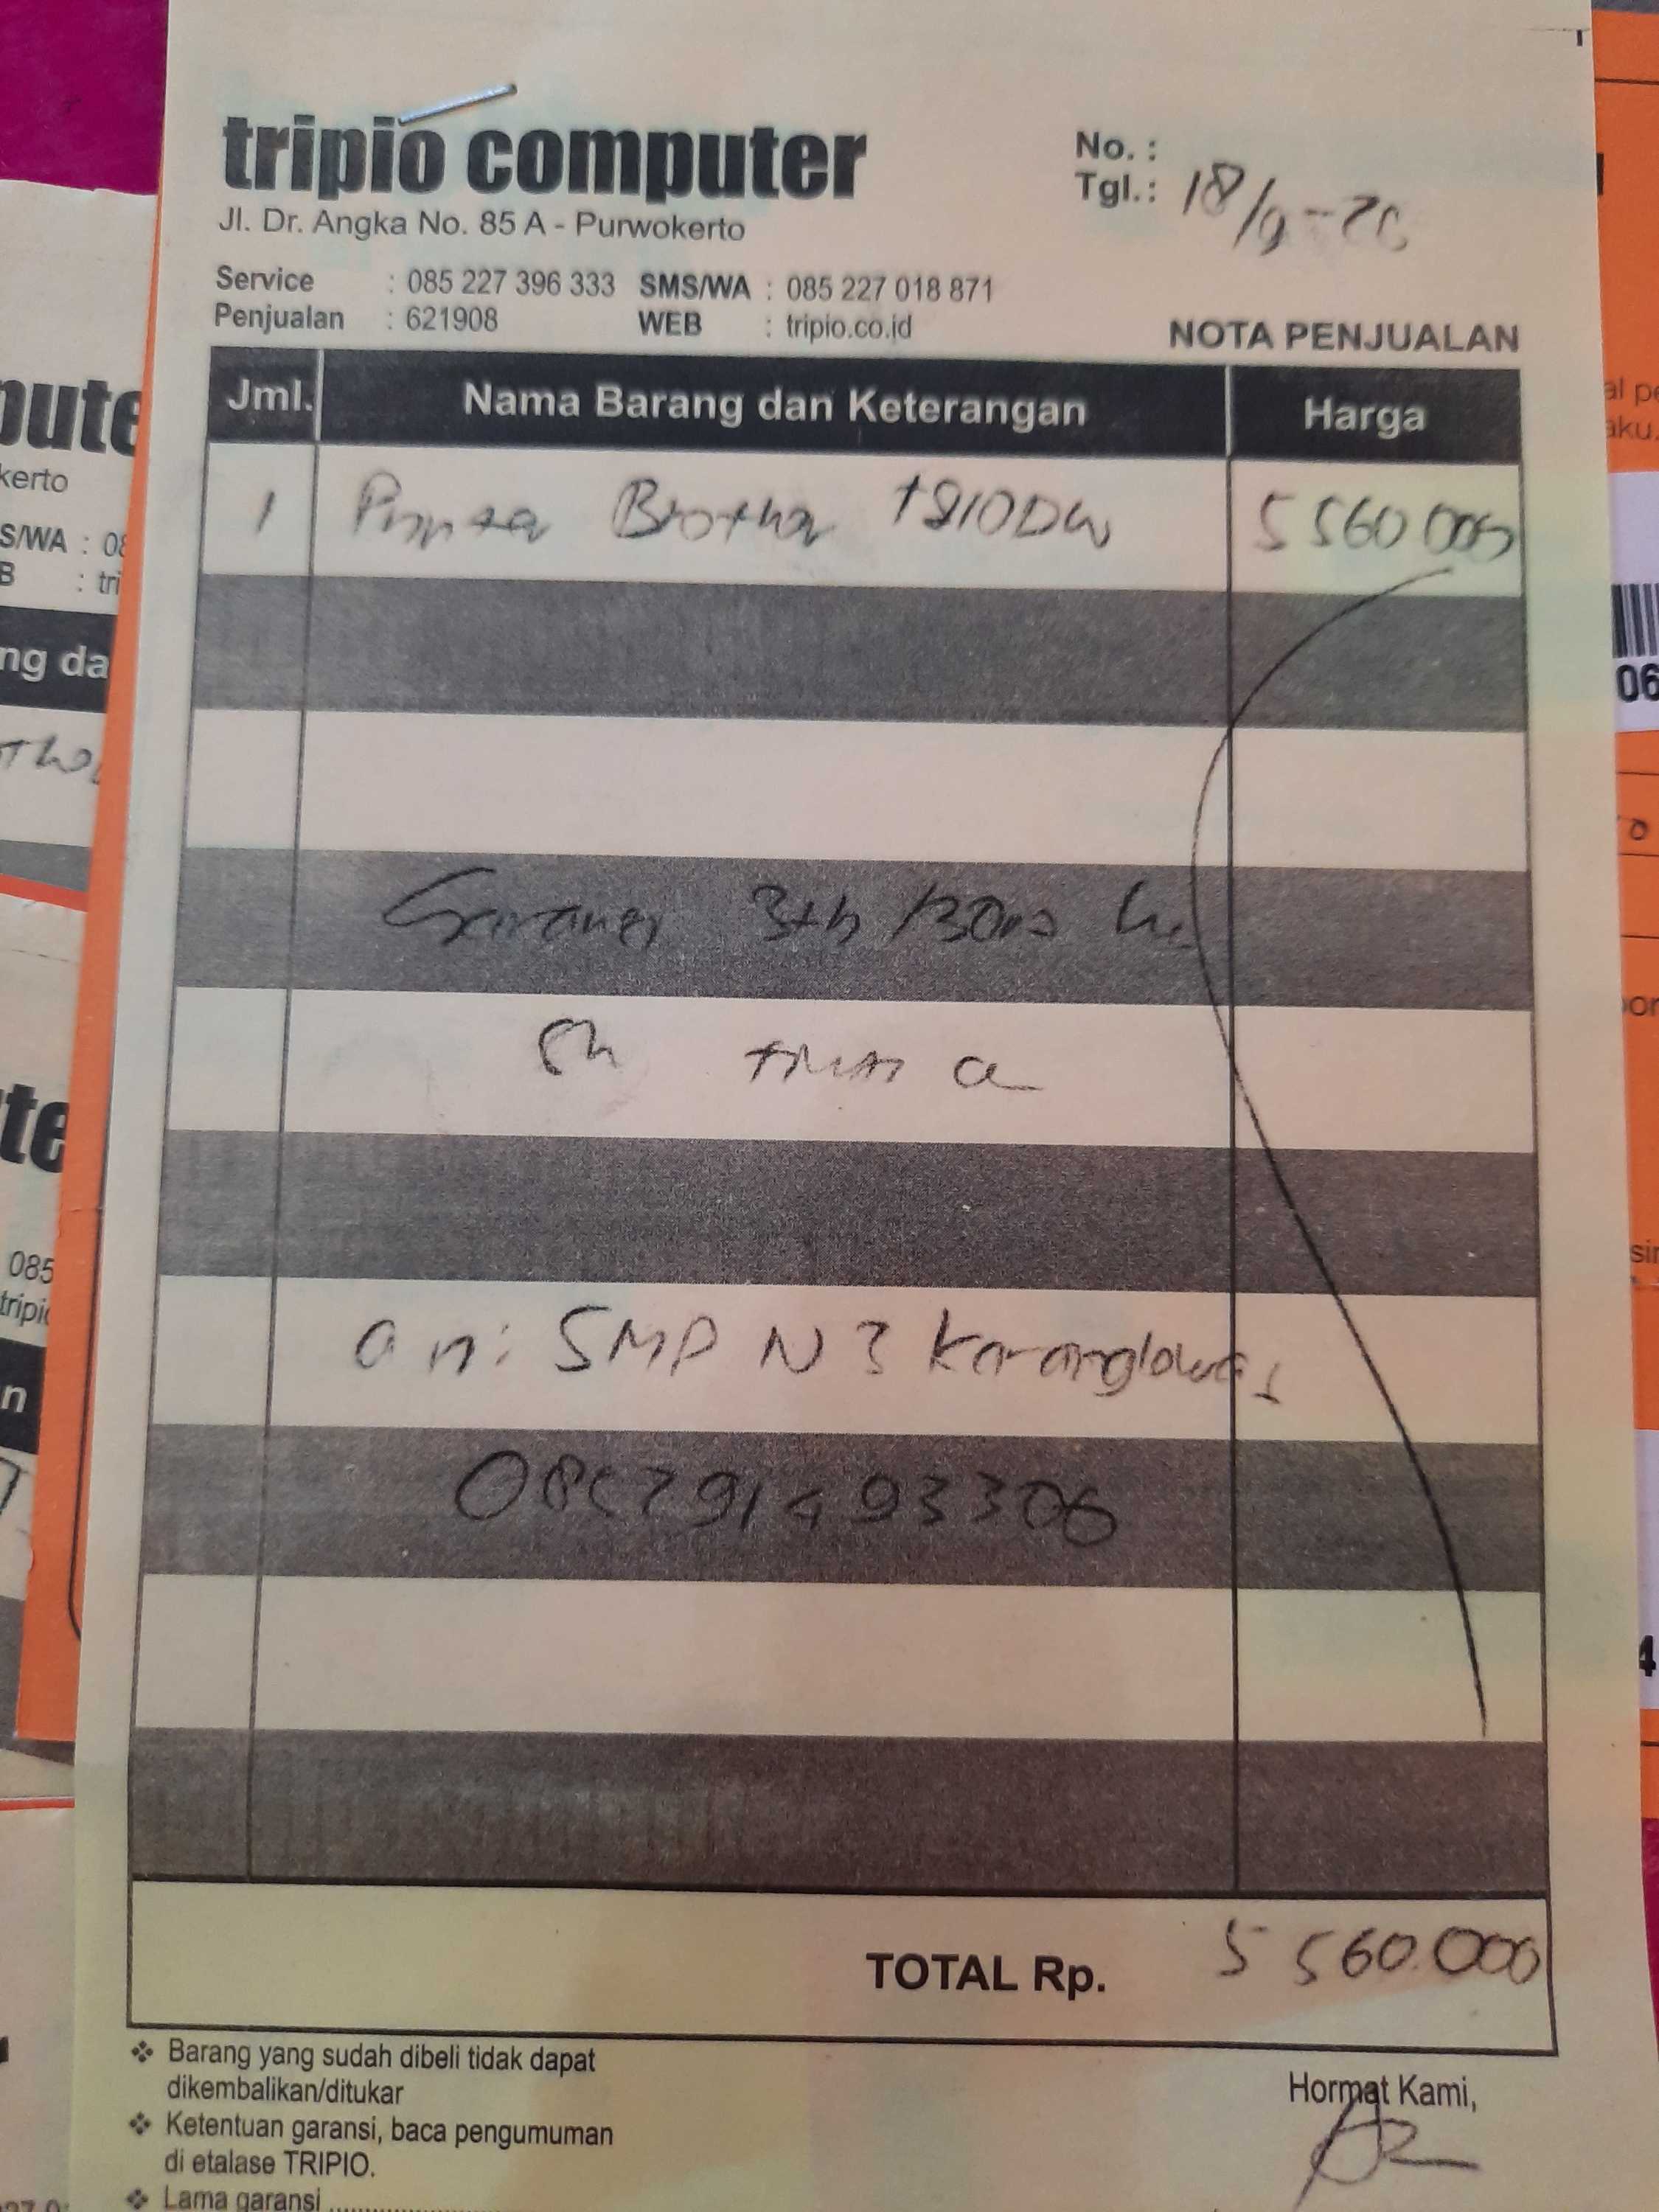 tripio computer
Jl. Dr. Angka No. 85 A - Purwokerto
No. :
Tgl.: 18/9-20
Service : 085 227 396 333 SMS/WA : 085 227 018 871
Penjualan : 621908 WEB : tripio.co.id
NOTA PENJUALAN
Jml. Nama Barang dan Keterangan Harga
1 Printer Brother T810DW 5 560 000
Garansi 3th /30rb
an: SMP N 3 Karanglewas
5 560.000
TOTAL Rp.
Barang yang sudah dibeli tidak dapat
dikembalikan/ditukar
Ketentuan garansi, baca pengumuman
di etalase TRIPIO.
Lama garansi
Hormat Kami,
pute
kerto
S/WA : 08
B : tri
ng da
te
085
tripi
n
06